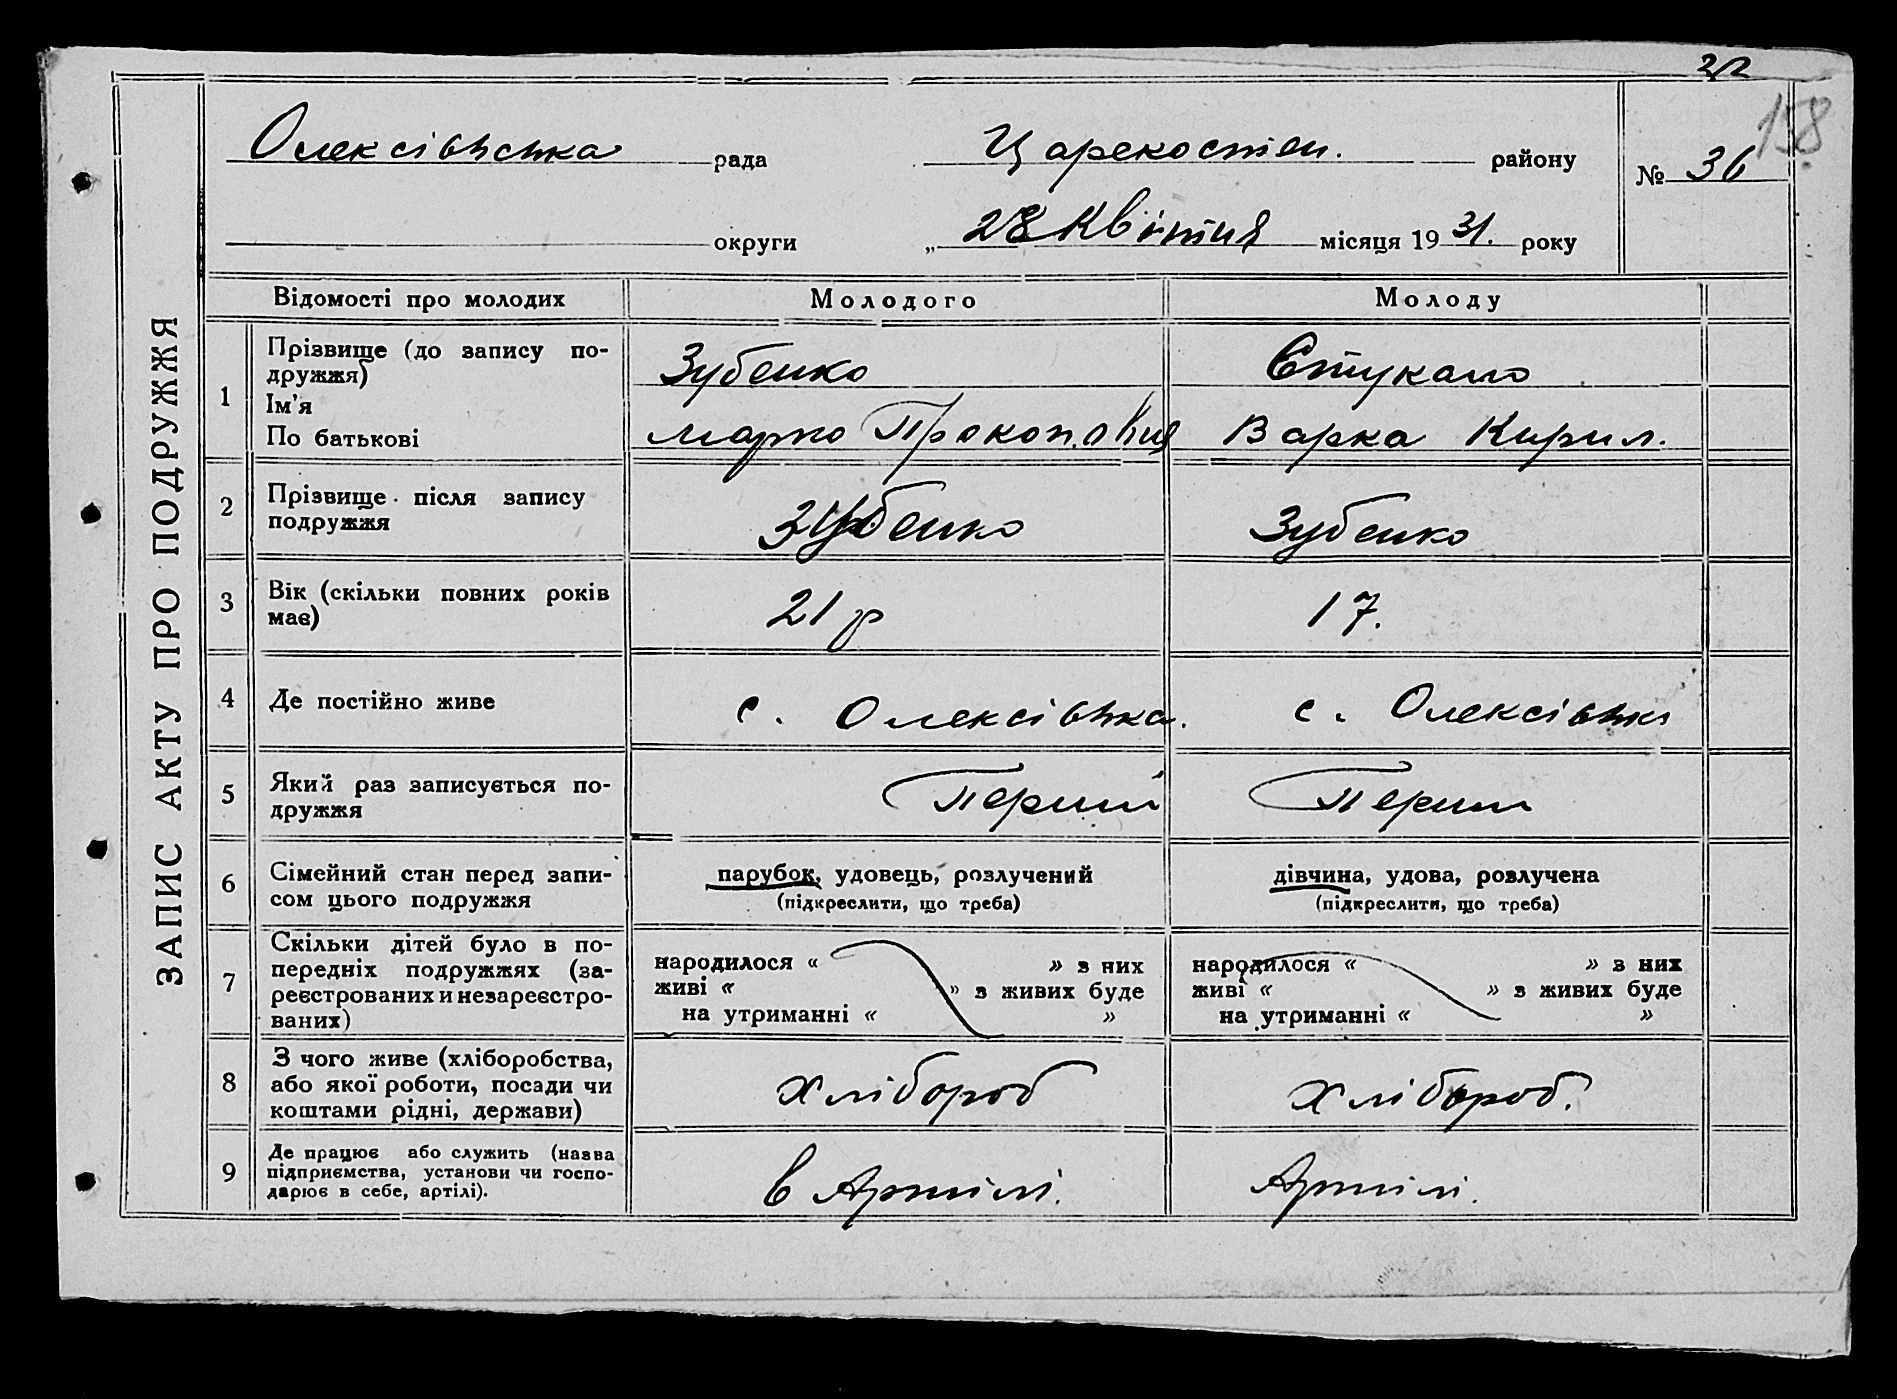 32
158
Олексівська рада Царекостян. району № 36
округи „ 28 Квітня місяця 1931. року
ЗАПИС АКТУ ПРО ПОДРУЖЖЯ
Відомості про молодих Молодого Молоду
1 Прізвище (до запису по-
дружжя) Зубенко Стукало
Ім’я
По батькові Марко Прокопович Варка Кирил.
2 Прізвище після запису
подружжя Зубенко Зубенко
3 Вік (скільки повних років
має) 21 р 17.
4 Де постійно живе с. Олексівка. с. Олексівка
5 Який раз записується по-
дружжя Перший Перший
6 Сімейний стан перед запи-
сом цього подружжя
парубок, удовець, розлучений
(підкреслити, що треба)
дівчина, удова, розлучена
(підкреслити, що треба)
7 Скільки дітей було в по-
передніх подружжях (за-
реєстрованих и незареєстро-
ваних)
народилося « » з них
живі « » з живих буде
на утриманні « »
народилося « » з них
живі « » з живих буде
на утриманні « »
8 З чого живе (хліборобства,
або якої роботи, посади чи
коштами рідні, держави) хлібороб хлібороб.
9 Де працює або служить (назва
підприємства, установи чи госпо-
дарює в себе, артілі). в Артілі. Артілі.